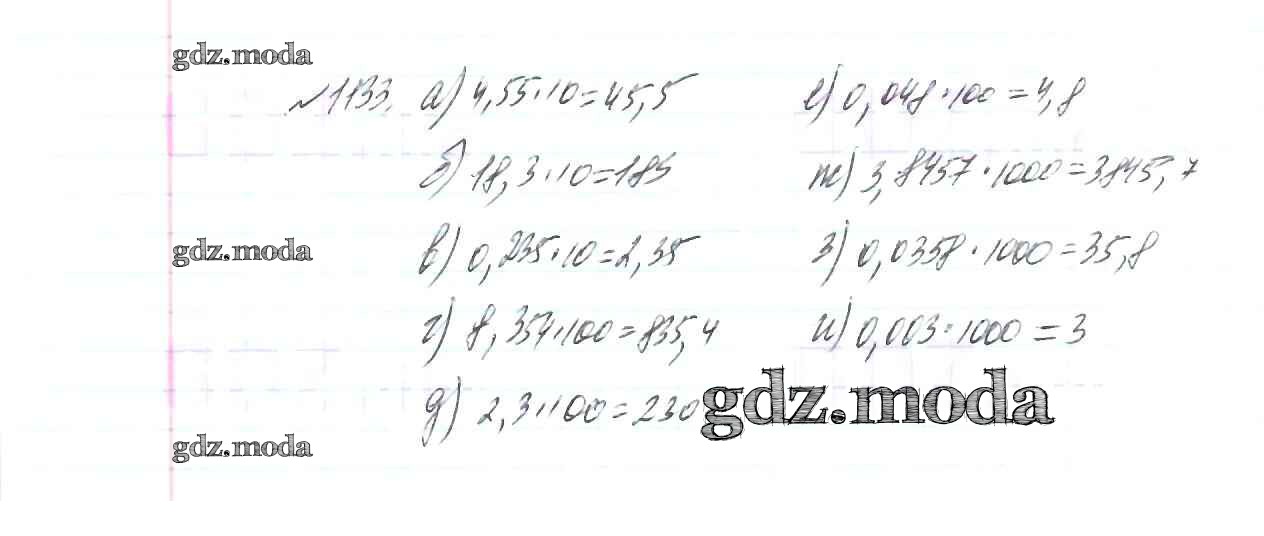 gdz.moda
№1133. а) 4,55·10=45,5
б) 18,3·10=183
в) 0,235·10=2,35
gdz.moda
г) 8,354·100=835,4
д) 2,3·100=230
е) 0,048·100=4,8
ж) 3,8457·1000=3845,7
з) 0,0358·1000=35,8
и) 0,003·1000=3
gdz.moda
gdz.moda